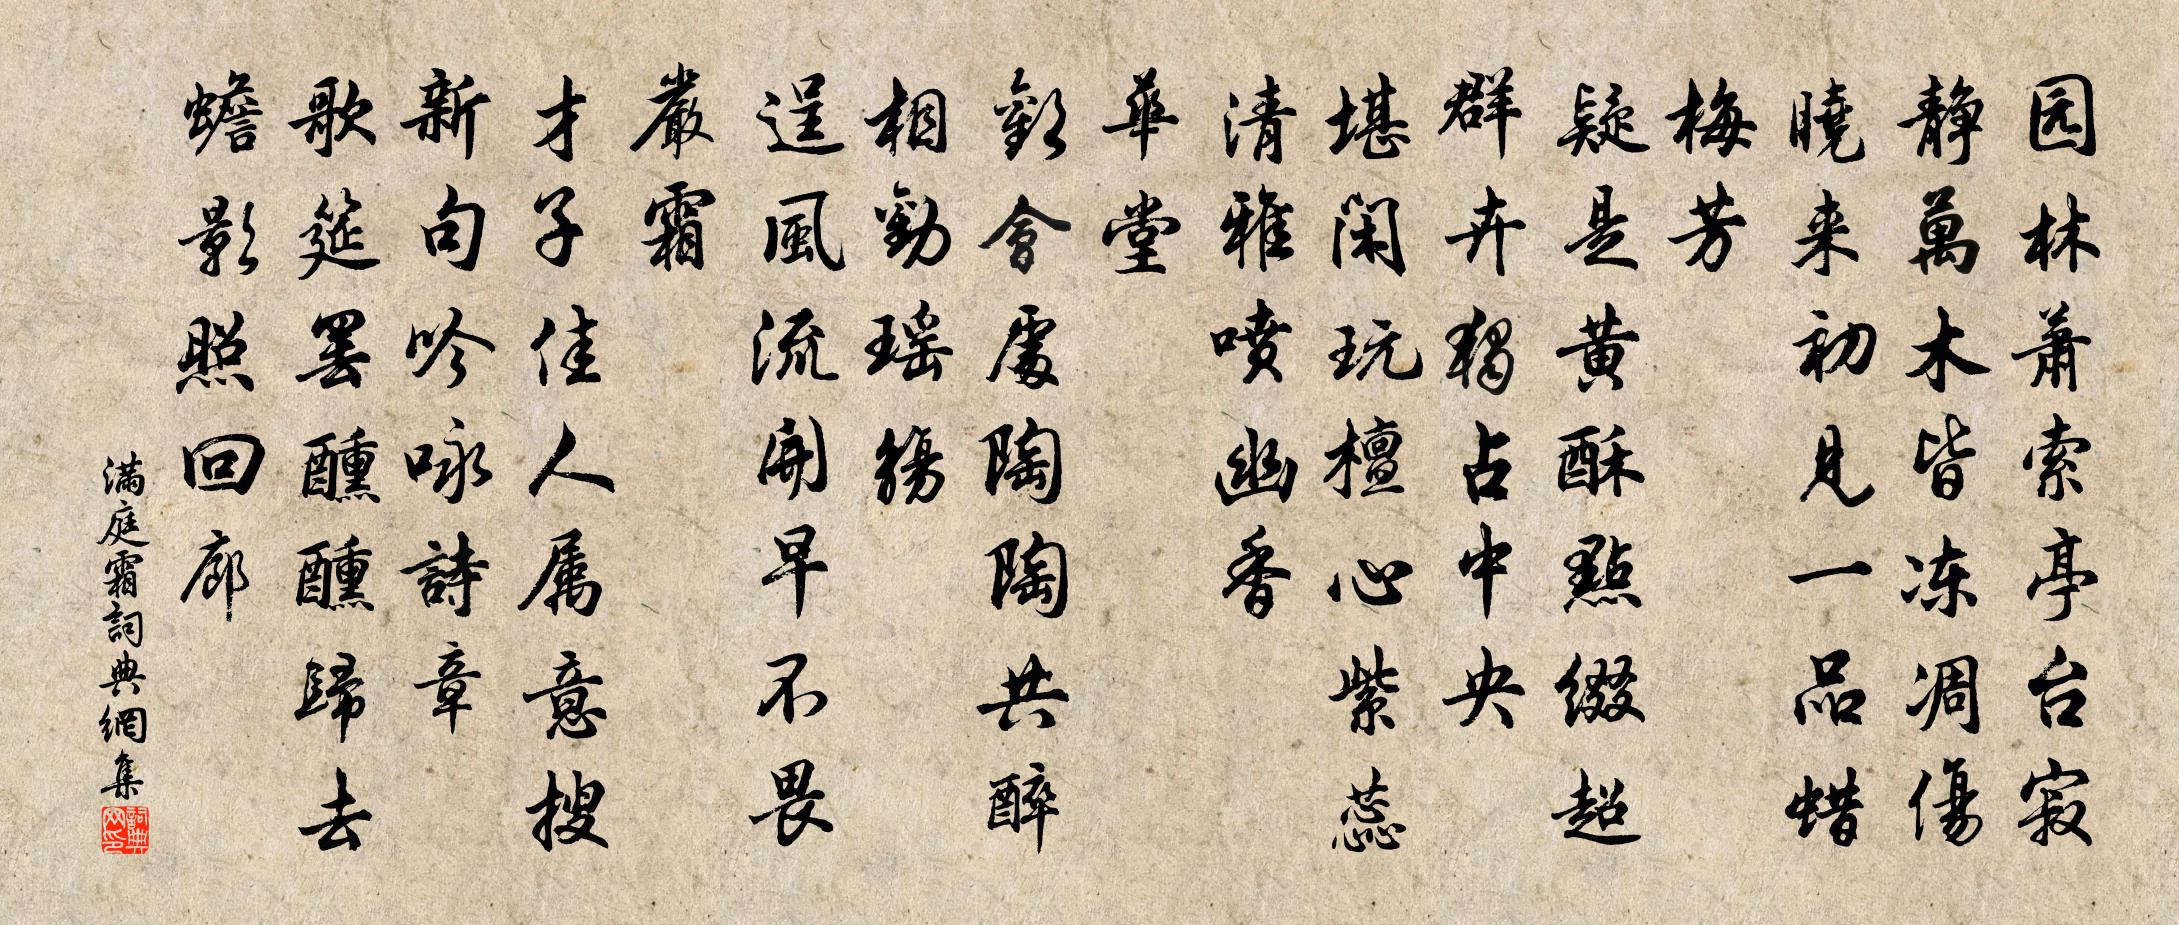 园林萧索亭台寂
静萬木皆冻凋傷
曉来初见一品蜡
梅芳
疑是黄酥點缀超
群卉獨占中央
堪闲玩檀心紫蕊
清雅喷幽香
華堂
歡會處陶陶共醉
相勸瑶觞
逞風流開早不畏
嚴霜
才子佳人属意搜
新句吟咏詩章
歌筵罢醺醺歸去
蟾影照回廊
满庭霜詞典網集
詞典网印